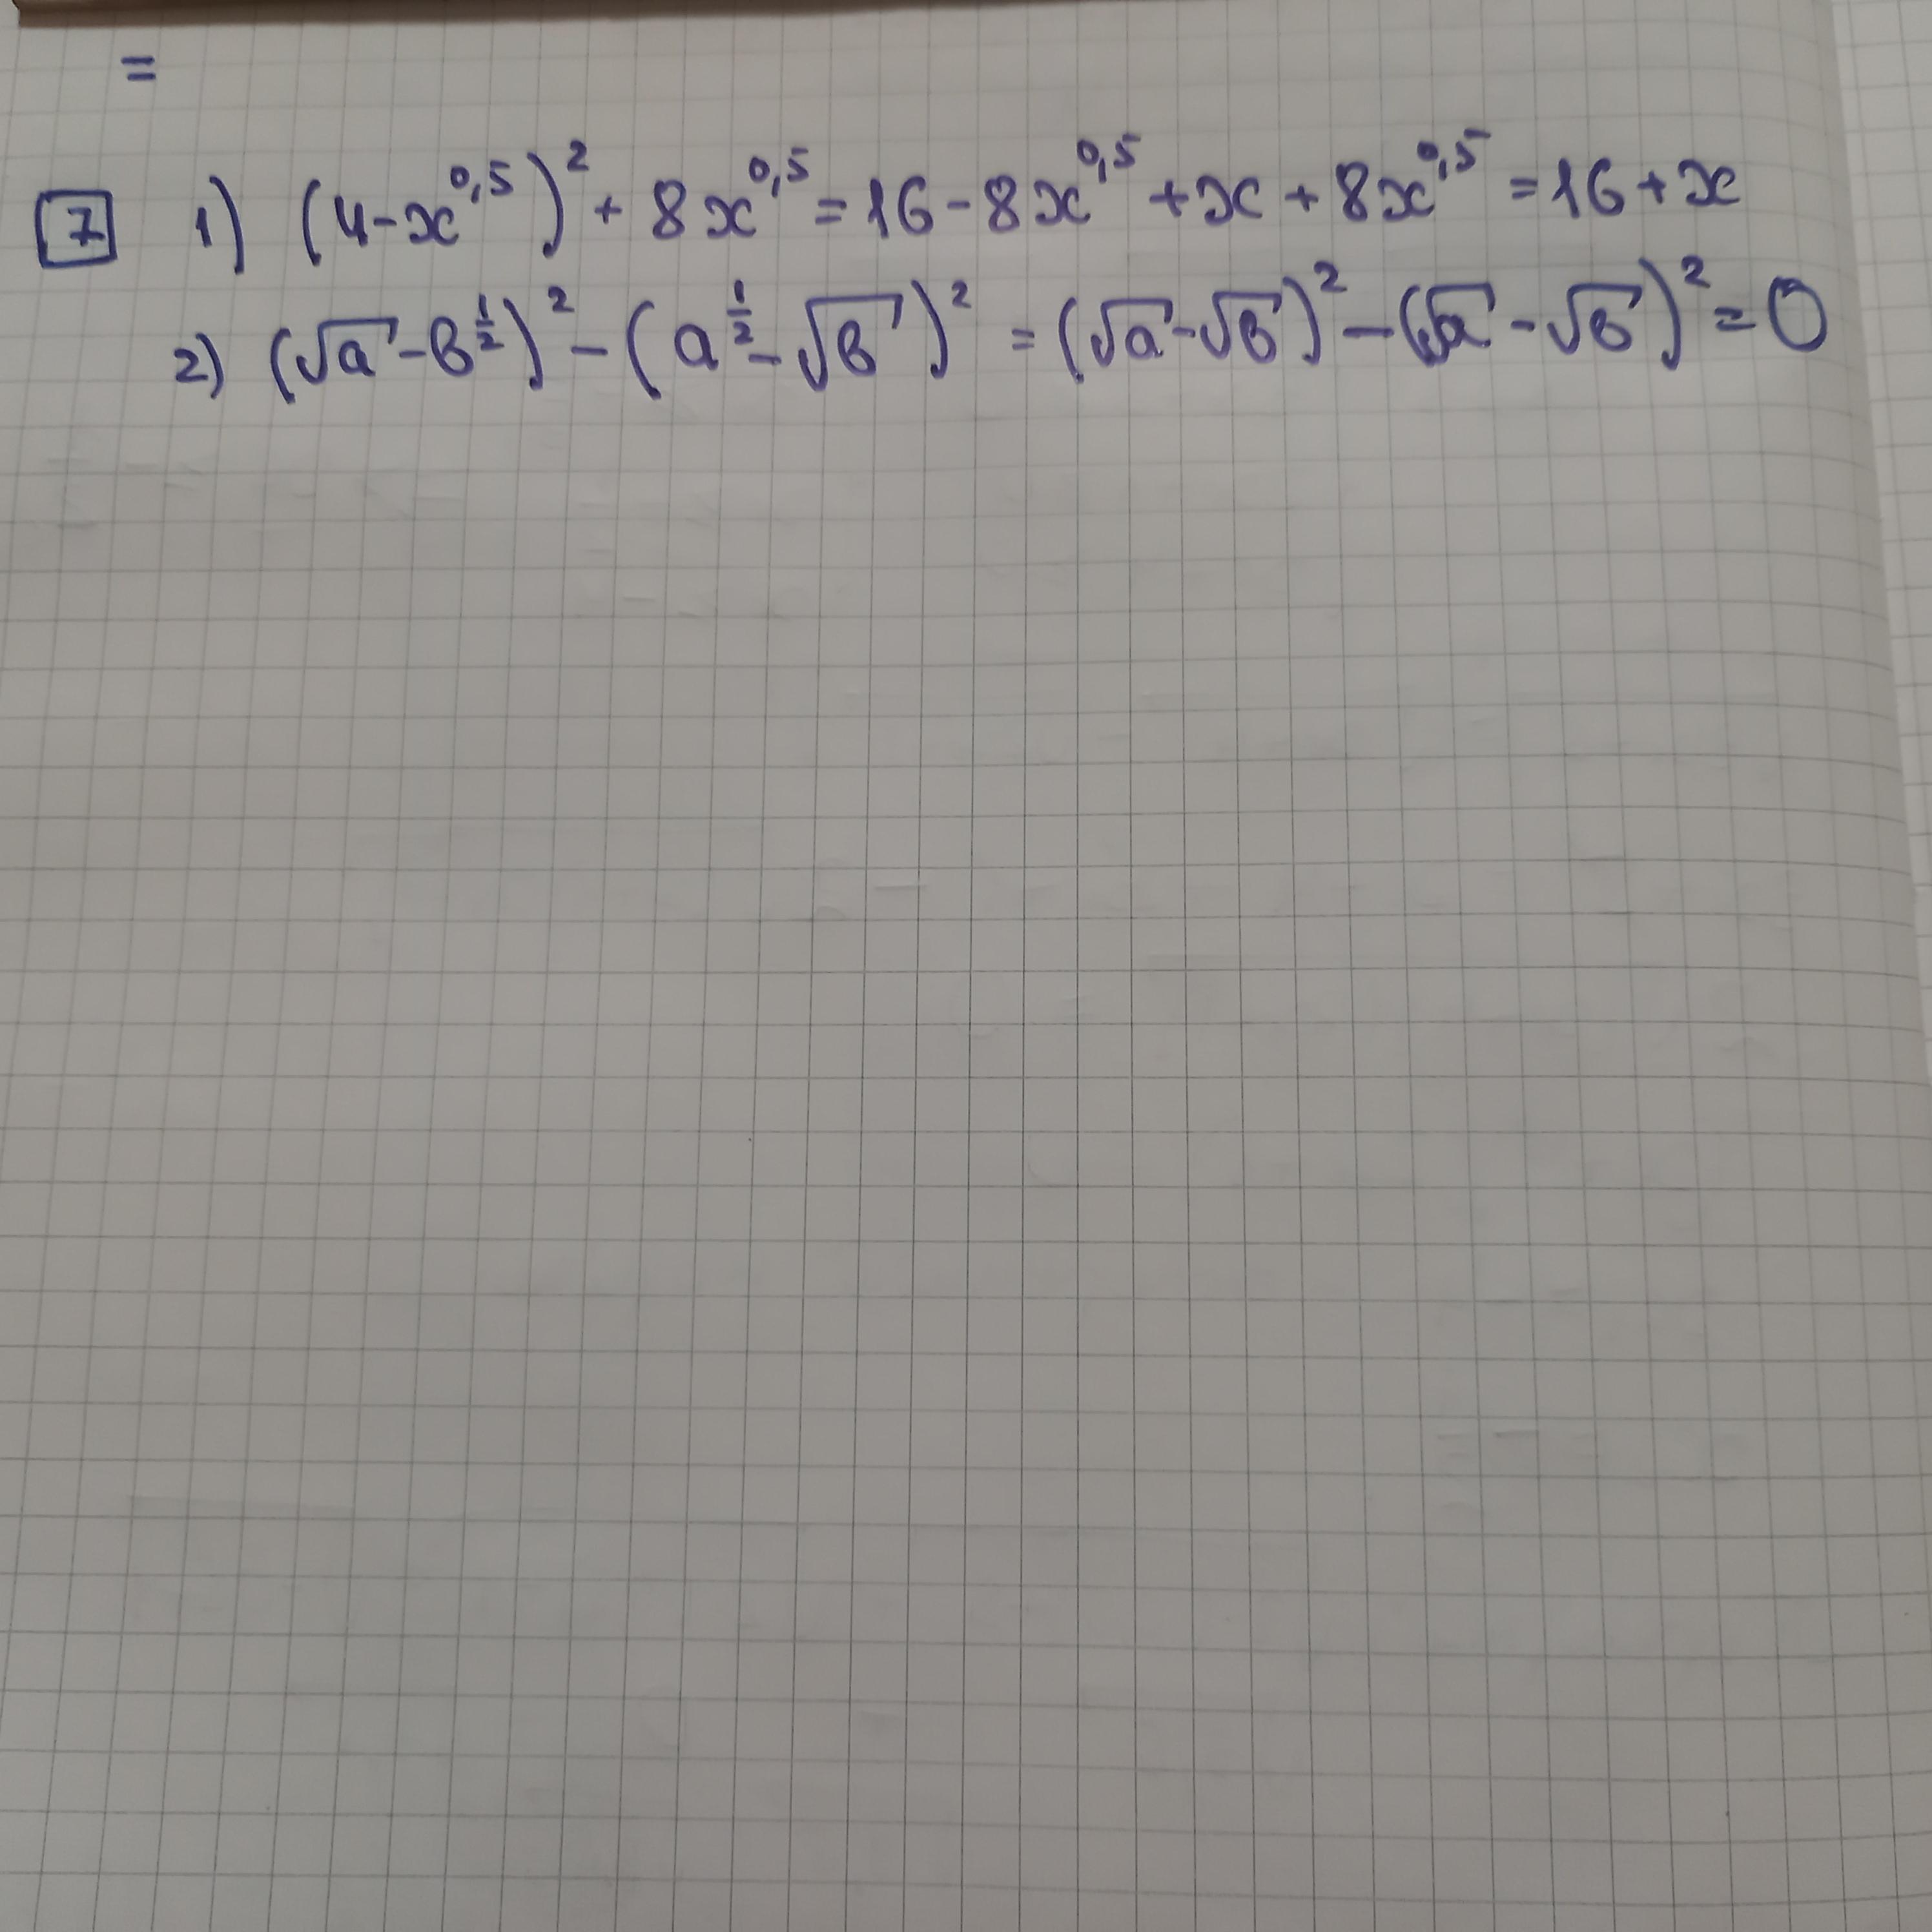 =
7 1) (4-x^0,5)^2 + 8x^0,5 = 16 - 8x^0,5 + x + 8x^0,5 = 16 + x
2) (√a - в^1/2)^2 - (a^1/2 - √в)^2 = (√a - √в)^2 - (√a - √в)^2 = 0